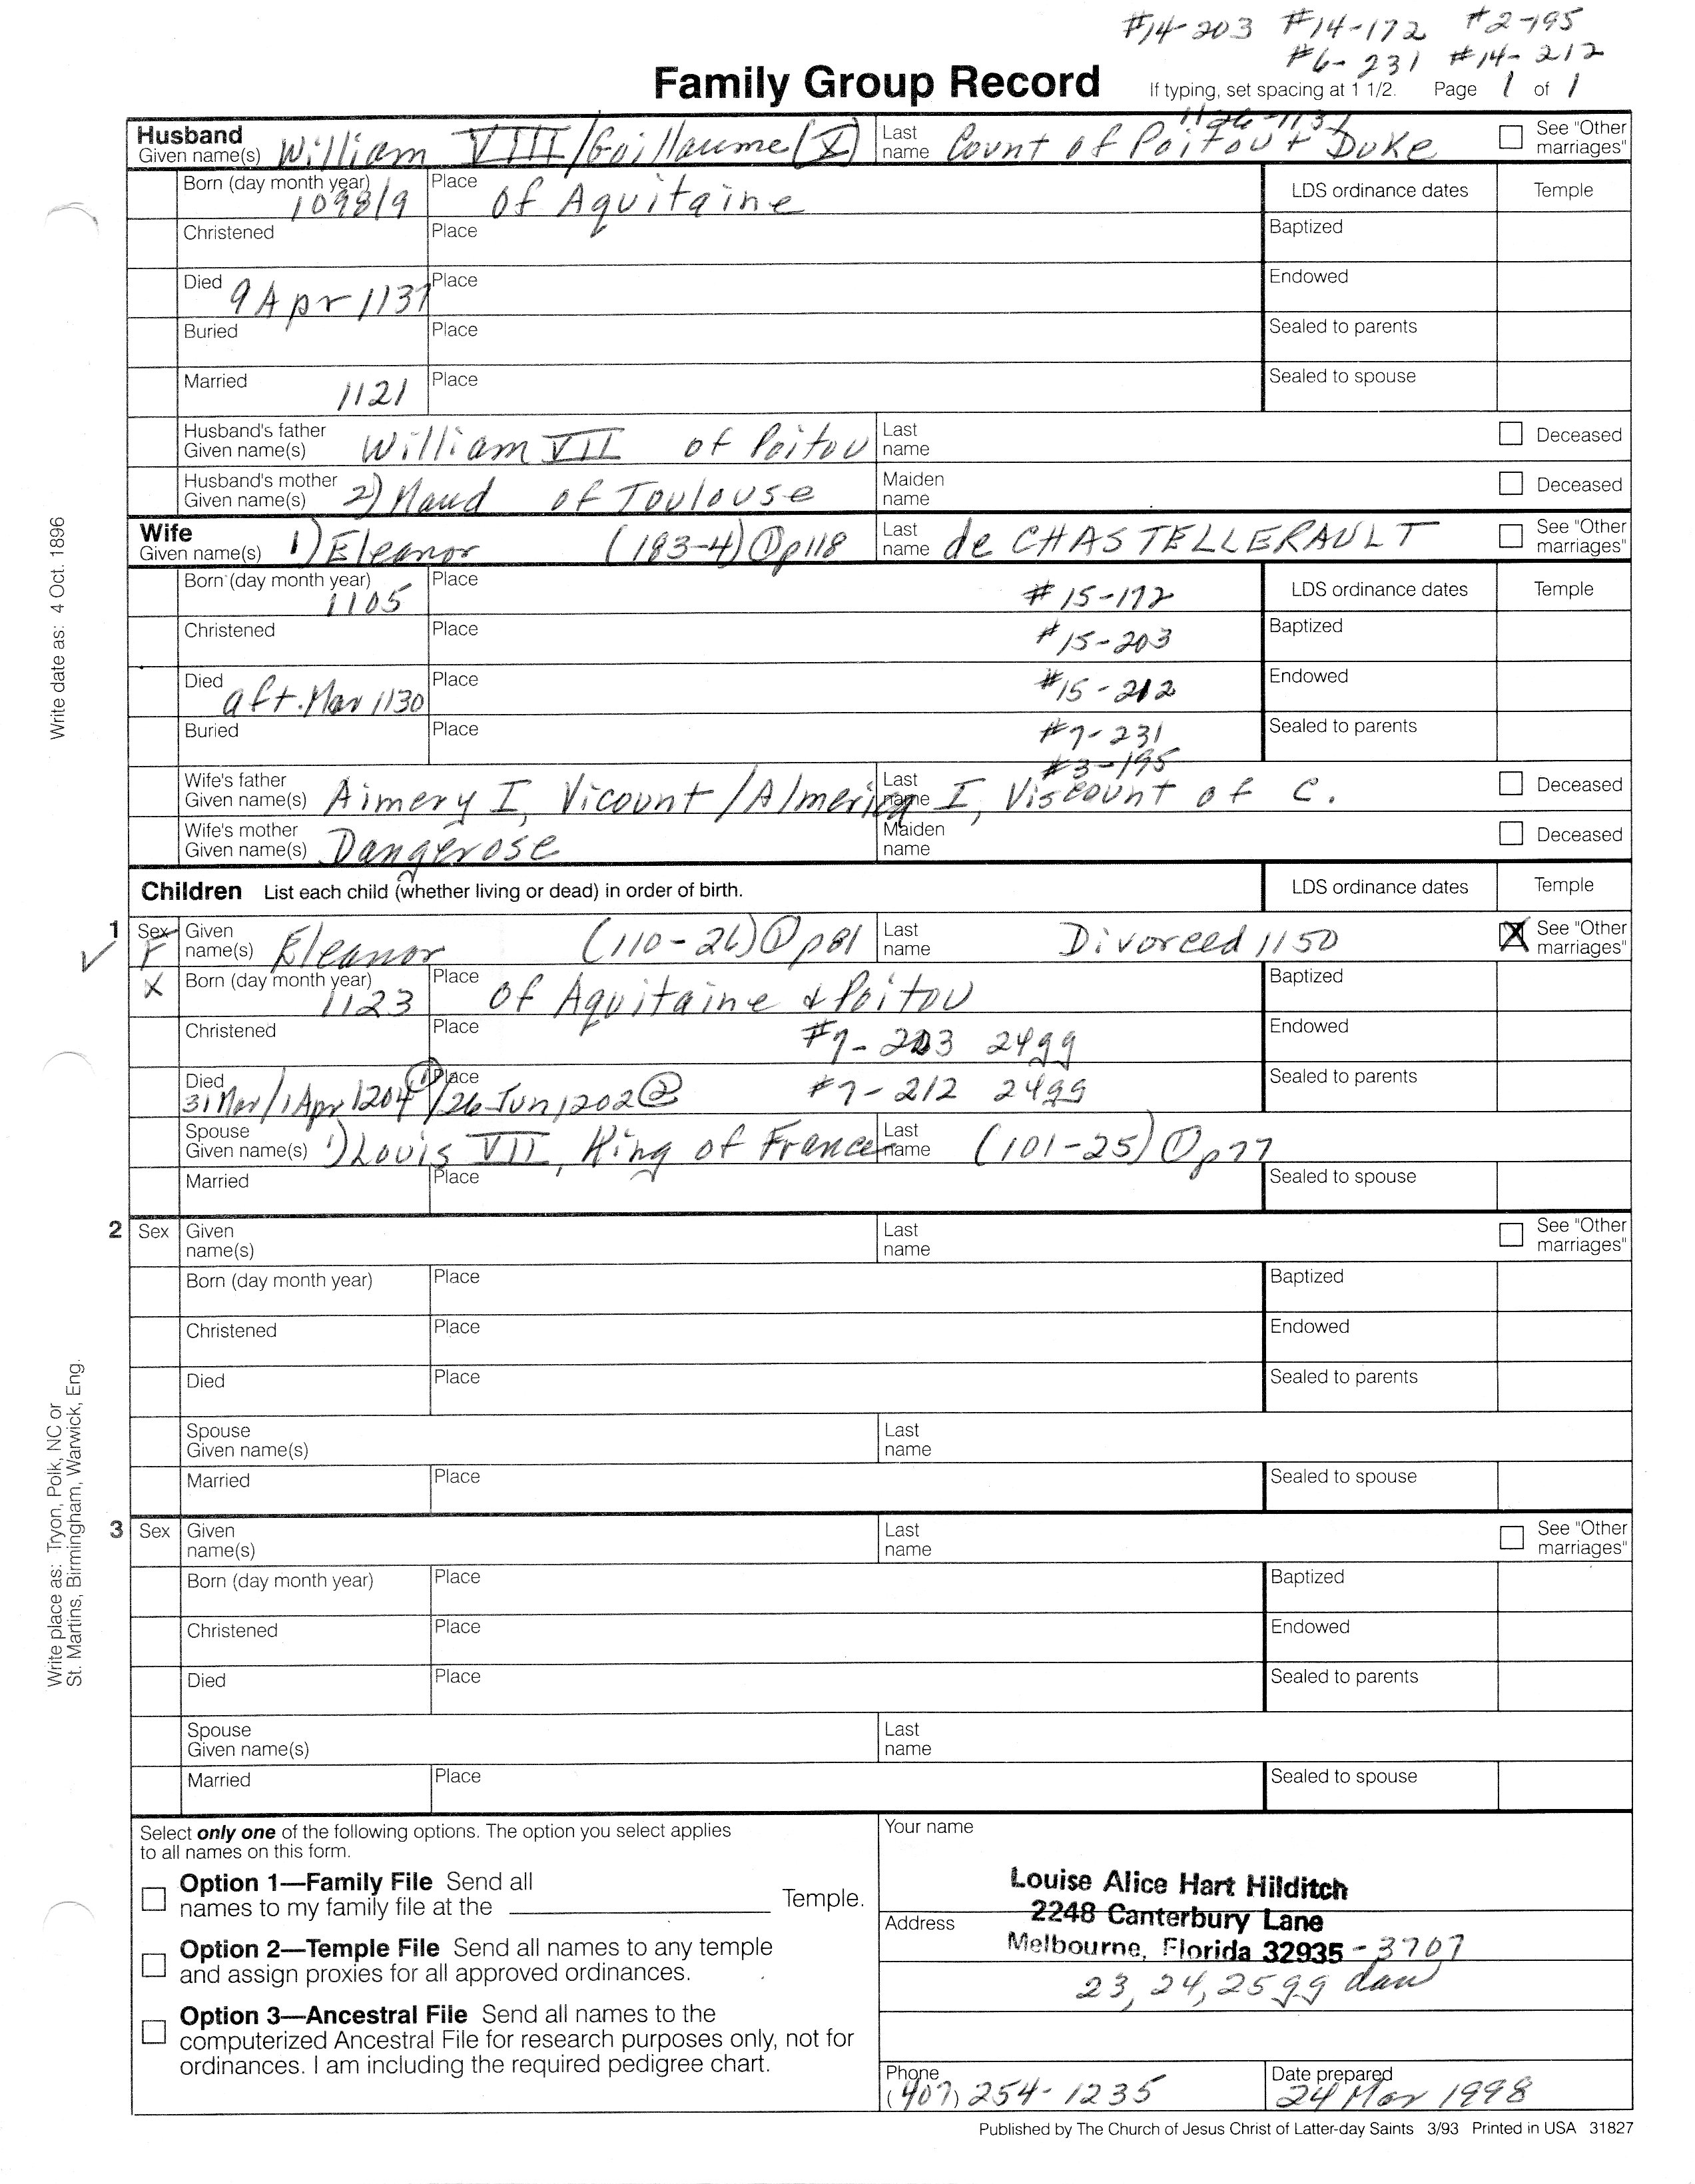 #14-203 #14-172 #2-195
#6-231 #14-212
Family Group Record
If typing, set spacing at 1 1/2. Page 1 of 1
Husband
Given name(s) William VIII/Guillaume (X) Last name Count of Poitou + Duke
See "Other marriages"
Born (day month year) 1098/9 Place of Aquitaine LDS ordinance dates Temple
Christened Place Baptized
Died 9 Apr 1137 Place Endowed
Buried Place Sealed to parents
Married 1121 Place Sealed to spouse
Husband's father Given name(s) William VII of Poitou Last name Deceased
Husband's mother Given name(s) 2) Maud of Toulouse Maiden name Deceased
Wife
Given name(s) 1) Eleanor (183-4) ① p118 Last name de CHASTELLERAULT See "Other marriages"
Born (day month year) 1105 Place #15-172 LDS ordinance dates Temple
Christened Place #15-203 Baptized
Died aft. Mar 1130 Place #15-212 Endowed
Buried Place #7-231 Sealed to parents
#3-195
Wife's father Given name(s) Aimery I, Vicount / Almeric I, Viscount of C. Last name Deceased
Wife's mother Given name(s) Dangerose Maiden name Deceased
Children List each child (whether living or dead) in order of birth. LDS ordinance dates Temple
1 Sex F Given name(s) Eleanor (110-26) ① p81 Last name Divorced 1150 X See "Other marriages"
X Born (day month year) 1123 Place of Aquitaine & Poitou Baptized
Christened Place #7-203 24gg Endowed
Died 31 Mar/1 Apr 1204 ① / 26 Jun 1202 ② Place #7-212 24gg Sealed to parents
Spouse Given name(s) 1) Louis VII, King of France Last name (101-25) ① p77
Married Place Sealed to spouse
2 Sex Given name(s) Last name See "Other marriages"
Born (day month year) Place Baptized
Christened Place Endowed
Died Place Sealed to parents
Spouse Given name(s) Last name
Married Place Sealed to spouse
3 Sex Given name(s) Last name See "Other marriages"
Born (day month year) Place Baptized
Christened Place Endowed
Died Place Sealed to parents
Spouse Given name(s) Last name
Married Place Sealed to spouse
Select only one of the following options. The option you select applies
to all names on this form.
Option 1—Family File Send all
names to my family file at the Temple.
Option 2—Temple File Send all names to any temple
and assign proxies for all approved ordinances.
Option 3—Ancestral File Send all names to the
computerized Ancestral File for research purposes only, not for
ordinances. I am including the required pedigree chart.
Your name
Louise Alice Hart Hilditch
Address 2248 Canterbury Lane
Melbourne, Florida 32935-3707
23, 24, 25gg dau
Phone (407) 254-1235
Date prepared 24 Mar 1998
Published by The Church of Jesus Christ of Latter-day Saints 3/93 Printed in USA 31827
Write date as: 4 Oct. 1896
Write place as: Tryon, Polk, NC or
St. Martins, Birmingham, Warwick, Eng.